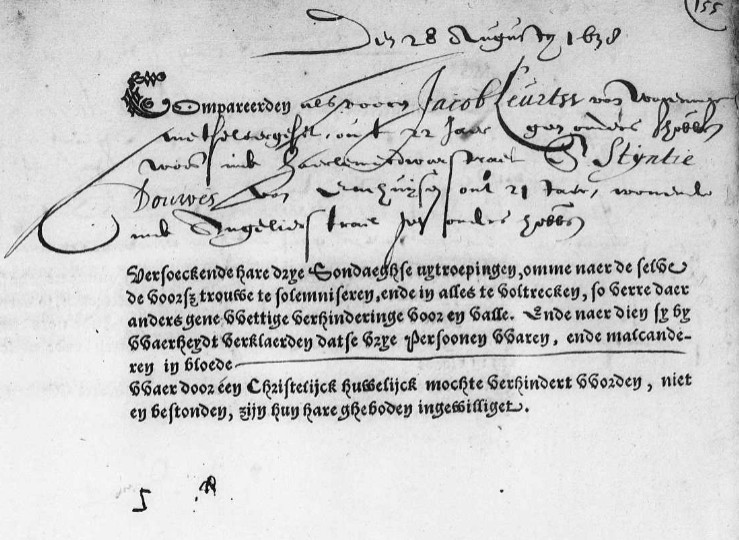 155
Den 28 Augusty 1638
Compareerden als vooren Jacob Leurtsz van
out 22 Jaer geen ouders hebben
woon inde Haerlemerdwarsstraet & Styntie
Douwes van Enchuysen out 21 Jaer, wonende
inde Angeliersstraet geen ouders hebben
Versoeckende hare drye Sondaeghse uytroepingen, omme naer de selve
de voorsz trouwe te solemniseren, ende in alles te voltrecken, so verre daer
anders gene VVettige verhinderinge voor en valle. Ende naer dien sy by
VVaerheydt verklaerden datse vrye Persoonen VVaren, ende malcande-
ren in bloede
VVaer door een Christelijck huwelijck mochte verhindert VVorden, niet
en bestonden, zijn hun hare gheboden ingewilliget.